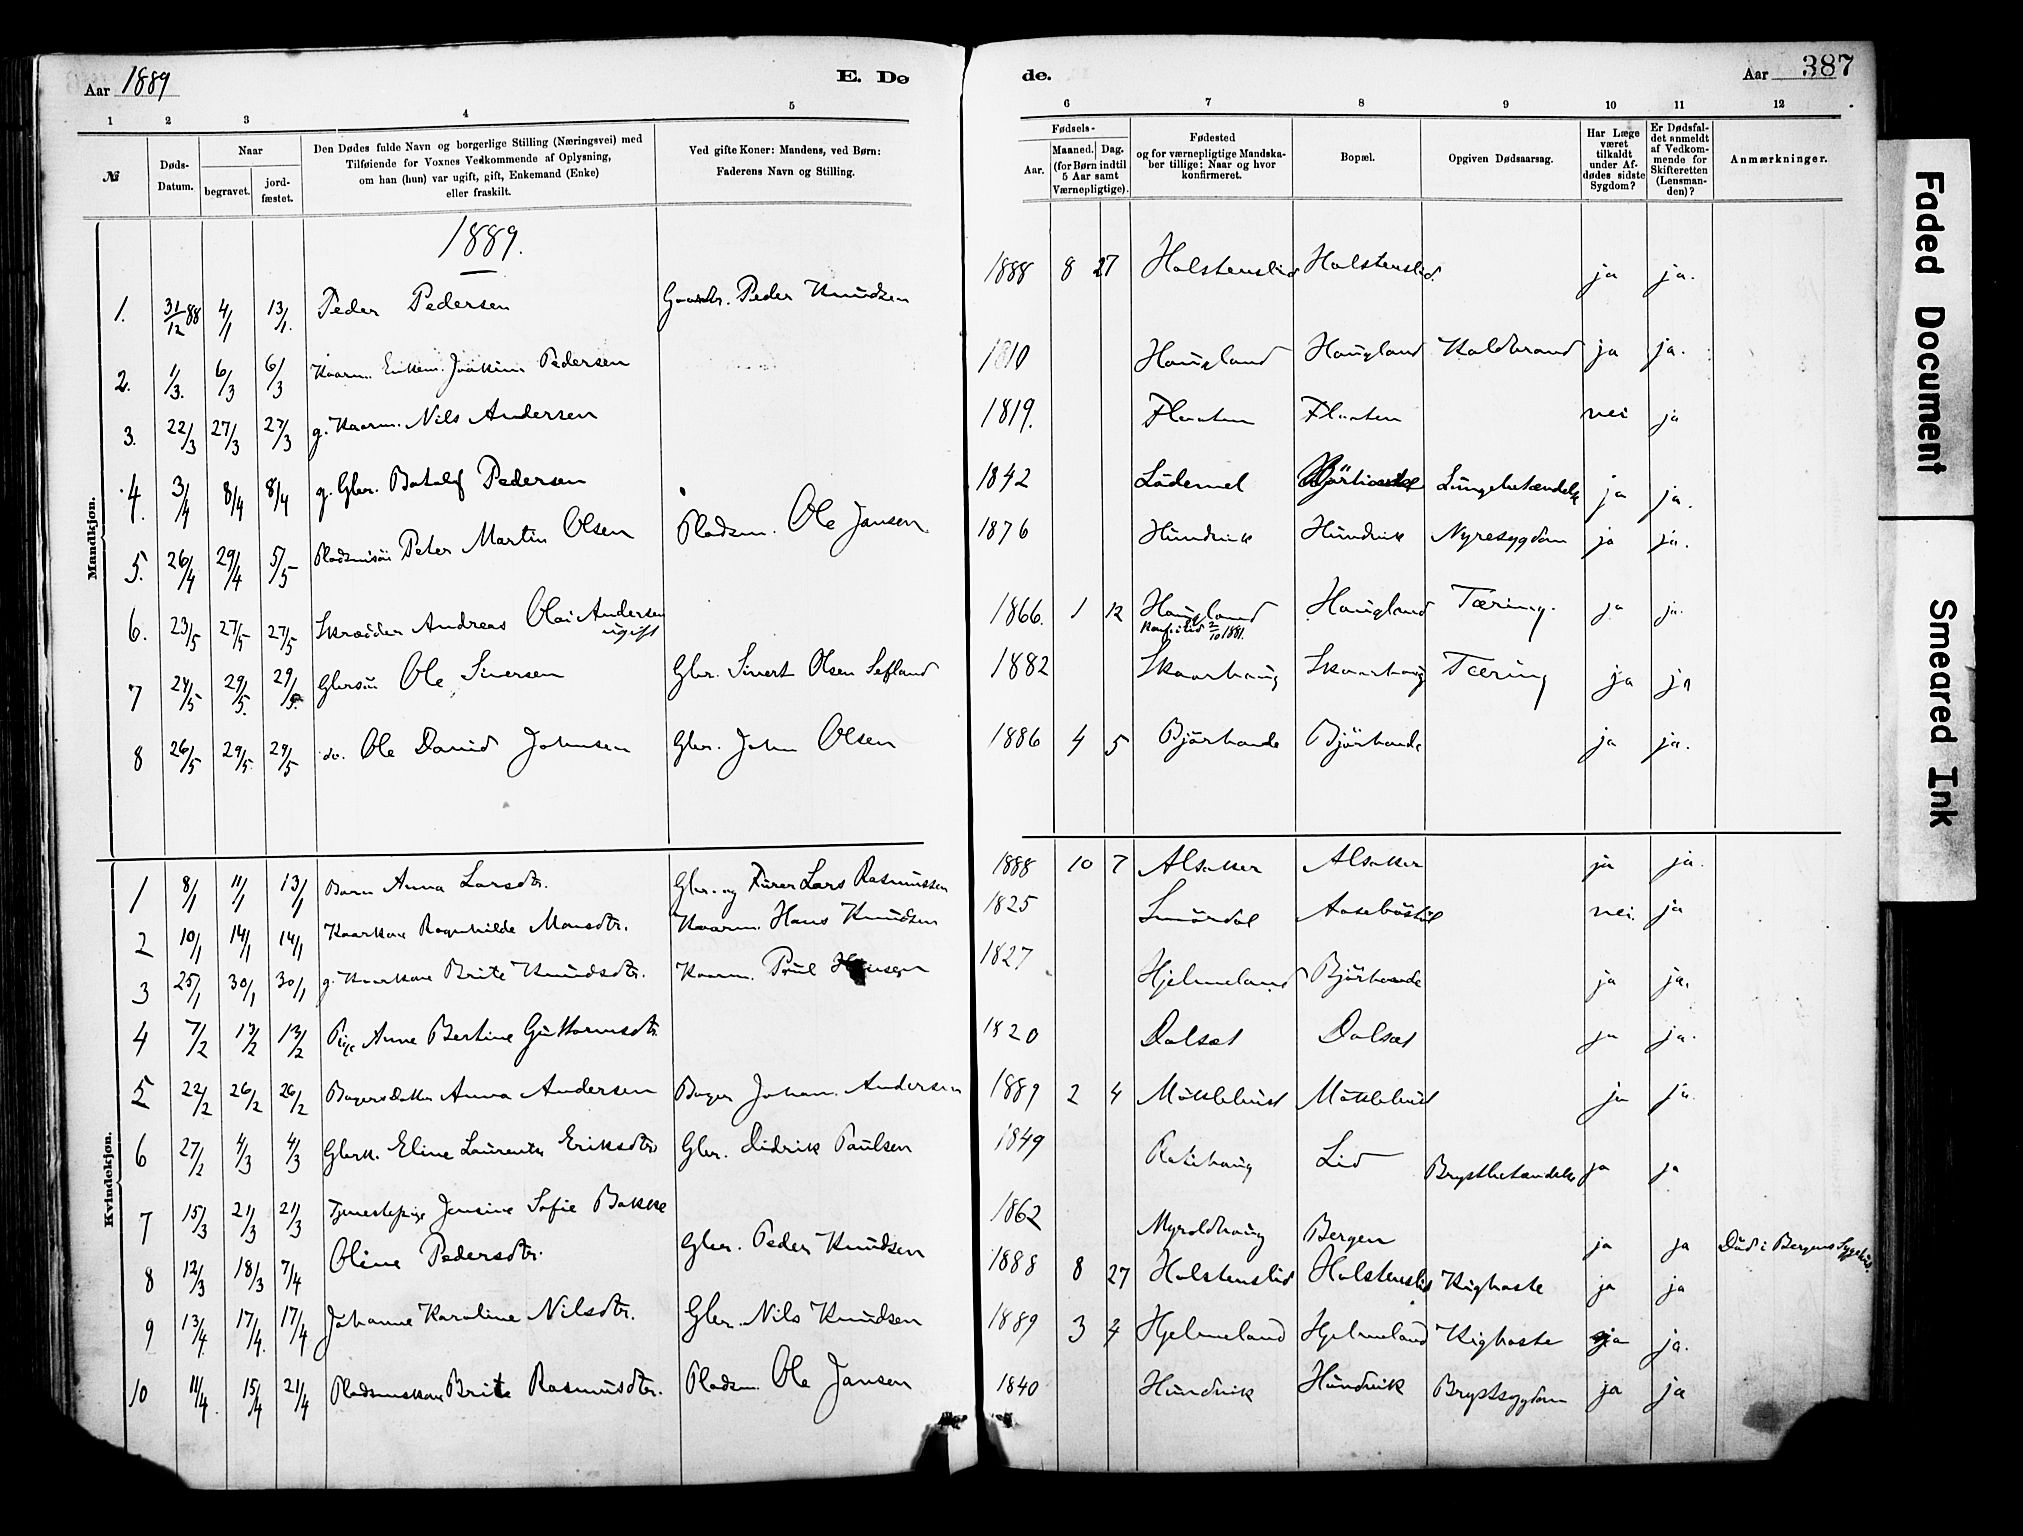 Aar 1889
E. Dø
de.
Aar 387
1 2 3 4 5 6 7 8 9 10 11 12
№
Døds-Datum.
Naar
begravet.
jord-fæstet.
Den Dødes fulde Navn og borgerlige Stilling (Næringsvei) med
Tilføiende for Voxnes Vedkommende af Oplysning,
om han (hun) var ugift, gift, Enkemand (Enke)
eller fraskilt.
Ved gifte Koner: Mandens, ved Børn:
Faderens Navn og Stilling.
Fødsels-
Aar.
Maaned. Dag.
(for Børn indtil
5 Aar samt
Værnepligtige).
Fødested
og for værnepligtige Mandska-
ber tillige: Naar og hvor
konfirmeret.
Bopæl.
Opgiven Dødsaarsag.
Har Læge
været
tilkaldt
under Af-
dødes sidste
Sygdom?
Er Dødsfal-
det anmeldt
af Vedkom-
mende for
Skifteretten
(Lensman-
den)?
Anmærkninger.
Mandkjøn.
1889.
1. 31/12 88 4/1 13/1. Peder Pedersen Gaardbr. Peder Knudsen 1888 8 27 Holstenslid Holstenslid ja ja.
2. 1/3. 6/3 6/3 Kaarm. Enkem. Joakim Pedersen 1810 Haugland Haugland Koldbrand ja ja.
3. 22/3 27/3 27/3 g. Kaarm. Nils Andersen 1819. Flaaten Flaaten nei ja
4. 3/4 8/4 8/4 g. Gbr. Batalf Pedersen 1842 Lødemel Bjørhovde Lungebetændelse ja ja.
5. 26/4 29/4 5/5 Pladsmsøn Peter Martin Olsen Pladsm. Ole Jansen 1876 Hundvik Hundvik Nyresygdom ja ja.
6. 23/5 27/5 27/5 Skrædder Andreas Olai Andersen ugift 1866. 1 12 Haugland Konf. i Lid 2/10 1881. Haugland Tæring. ja ja.
7 24/5 29/5. 29/5. Gbrsøn Ole Siversen Gbr. Sivert Olsen Sefland 1882 Skaarhaug Skaarhaug Tæring ja ja
8 26/5 29/5. 29/5 do. Ole David Johnsen Gbr. John Olsen 1886 4 5 Bjørhovde Bjørhovde ja ja.
Kvindekjøn.
1 8/1 11/1 13/1 Barn Anna Larsdtr. Gbr. og Furer Lars Rasmussen 1888 10 7 Alsaker Alsaker ja ja.
2 10/1 14/1 14/1 Kaarkone Ragnhilde Monsdtr. Kaarm. Hans Knudsen 1825 Smørdal Aasebøstøl nei. ja
3 25/1 30/1 30/1 g. Kaarkone Brite Knudsdtr. Kaarm. Poul Hansen 1827 Hjelmeland Bjørhovde ja ja.
4 7/2 13/2 13/2 Pige Anne Bertine Guttormsdtr. 1820 Dalset Dalset ja ja.
5 22/2 26/2 26/2 Bagersdatter Anna Andersen Bager Johan Andersen 1889 2 4 Møklebust Møklebust ja ja.
6 27/2 4/3 4/3 Gbrk. Eline Laurentse Eriksdtr. Gbr. Didrik Paulsen 1849 Lid Brystbetændelse ja ja
7 15/3 21/3 21/3 Tjenestepige Jensine Sofie Bakke 1862 Myroldhaug Bergen ja ja Død i Bergens Sygehus.
8 12/3 18/3 7/4 Oline Pedersdtr. Gbr. Peder Knudsen 1888 8 27 Holstenslid Holstenslid Kighoste ja ja
9 13/4 17/4. 17/4 Johanne Karoline Nilsdtr. Gbr. Nils Knudsen 1889 3 4 Hjelmeland Hjelmeland Kighoste ja ja.
10 11/4 15/4 21/4 Pladsmskone Brite Rasmusdtr. Pladsm. Ole Jansen 1840 Hundvik Hundvik Brystsygdom ja ja
Faded Document
Smeared Ink